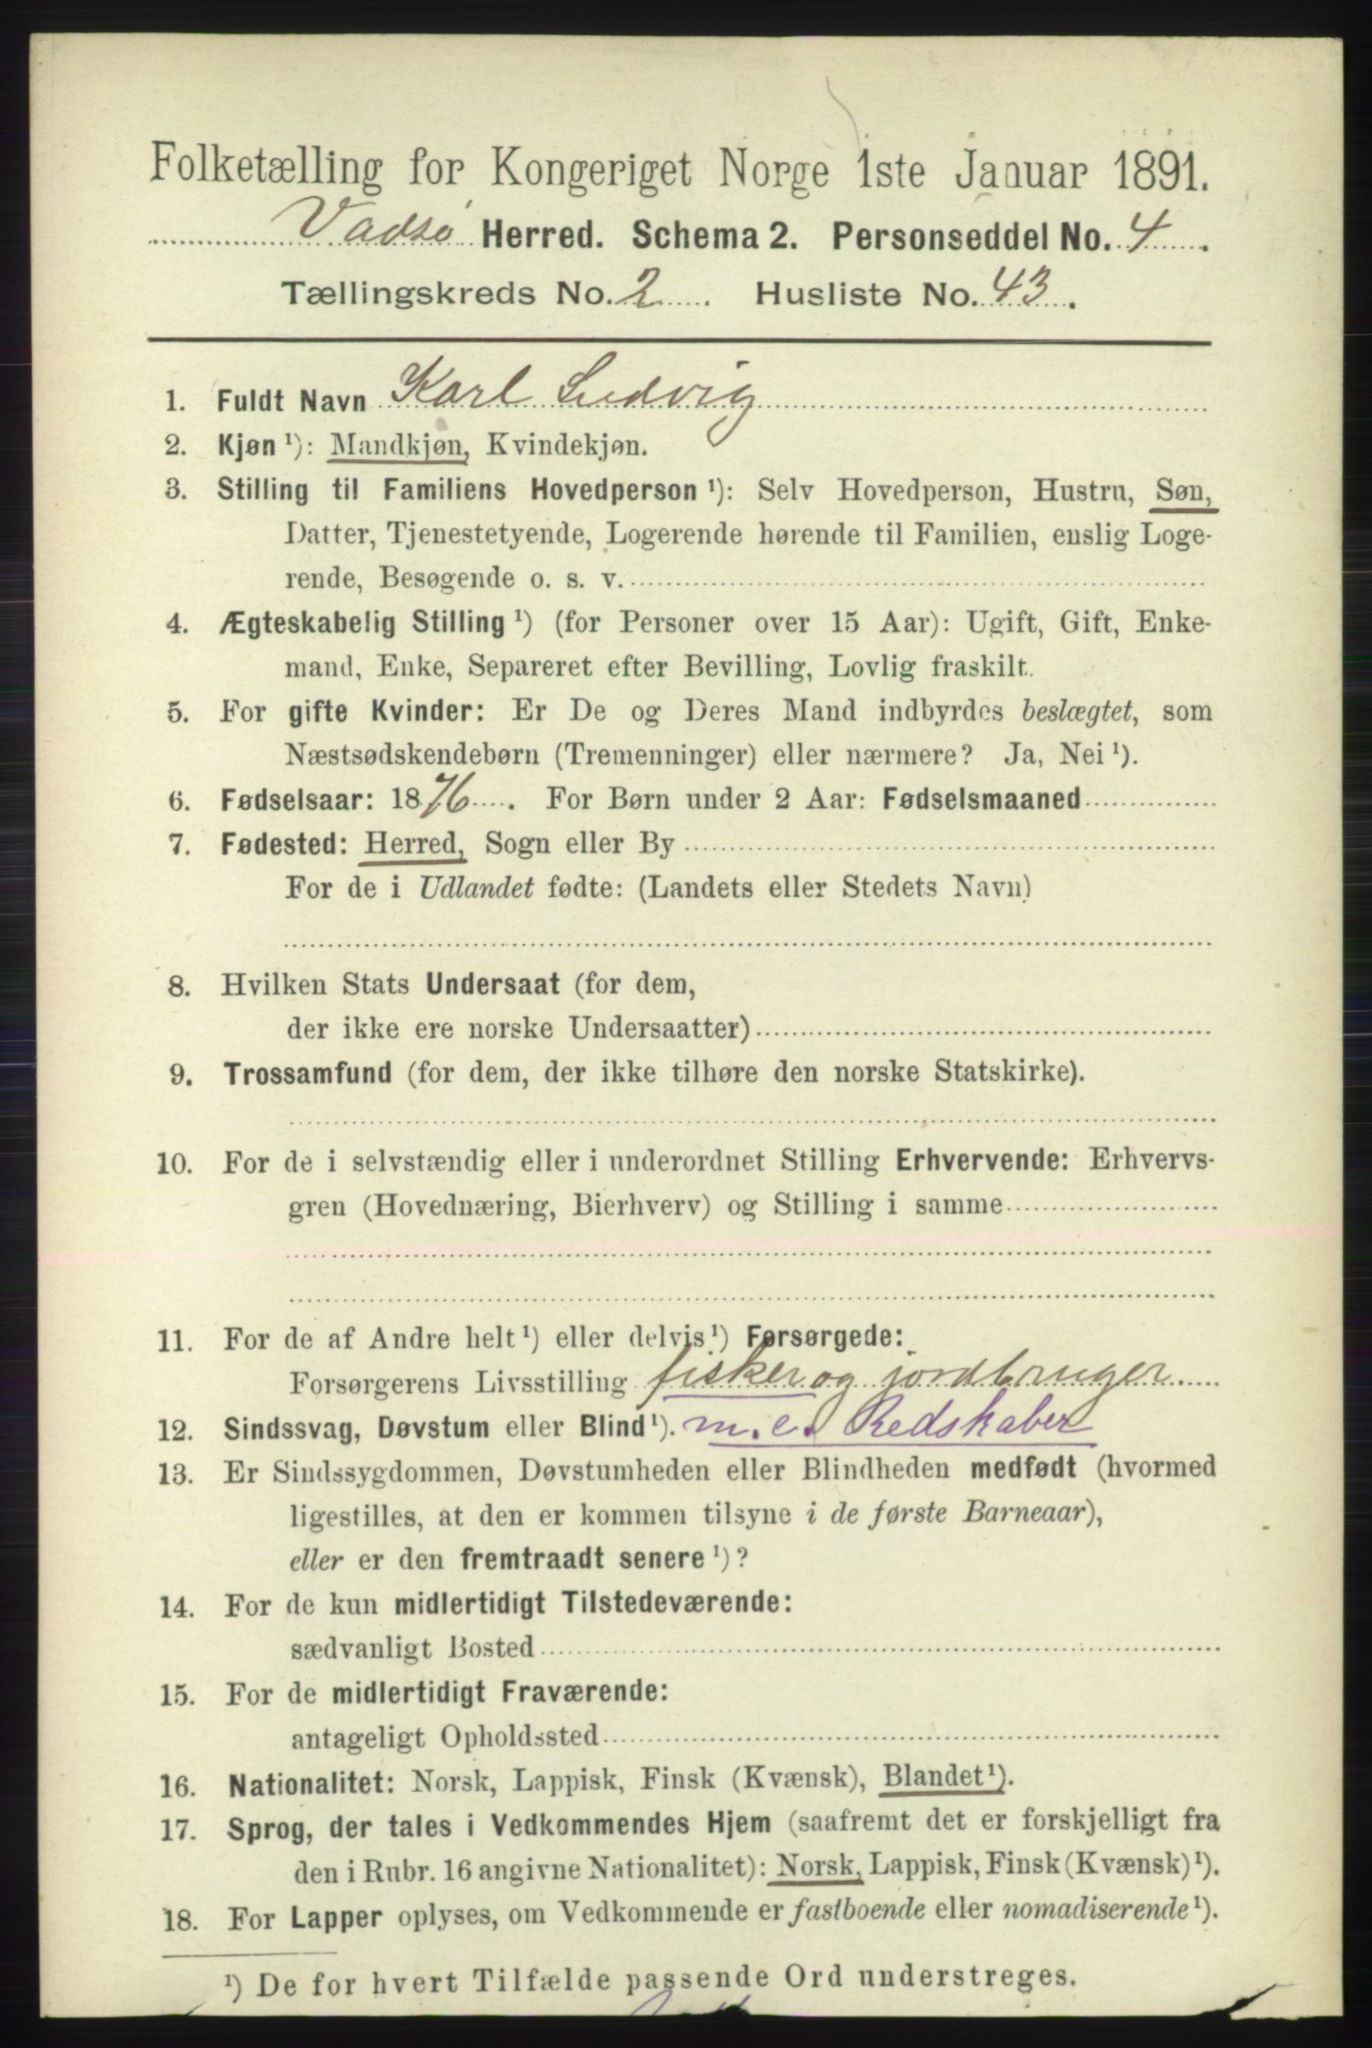 Folketælling for Kongeriget Norge 1ste Januar 1891.
Vadsø Herred. Schema 2. Personseddel No. 4
Tællingskreds No. 2 Husliste No. 43.
1. Fuldt Navn Karl Ludvig
2. Kjøn ¹): Mandkjøn, Kvindekjøn.
3. Stilling til Familiens Hovedperson ¹): Selv Hovedperson, Hustru, Søn,
Datter, Tjenestetyende, Logerende hørende til Familien, enslig Loge-
rende, Besøgende o. s. v.
4. Ægteskabelig Stilling ¹) (for Personer over 15 Aar): Ugift, Gift, Enke-
mand, Enke, Separeret efter Bevilling, Lovlig fraskilt.
5. For gifte Kvinder: Er De og Deres Mand indbyrdes beslægtet, som
Næstsødskendebørn (Tremenninger) eller nærmere? Ja, Nei ¹).
6. Fødselsaar: 1876. For Børn under 2 Aar: Fødselsmaaned
7. Fødested: Herred, Sogn eller By
For de i Udlandet fødte: (Landets eller Stedets Navn)
8. Hvilken Stats Undersaat (for dem,
der ikke ere norske Undersaatter)
9. Trossamfund (for dem, der ikke tilhøre den norske Statskirke).
10. For de i selvstændig eller i underordnet Stilling Erhvervende: Erhvervs-
gren (Hovednæring, Bierhverv) og Stilling i samme
11. For de af Andre helt ¹) eller delvis ¹) Forsørgede:
Forsørgerens Livsstilling fisker og jordbruger
12. Sindssvag, Døvstum eller Blind ¹). m. e. Redskaber
13. Er Sindssygdommen, Døvstumheden eller Blindheden medfødt (hvormed
ligestilles, at den er kommen tilsyne i de første Barneaar),
eller er den fremtraadt senere ¹)?
14. For de kun midlertidigt Tilstedeværende:
sædvanligt Bosted
15. For de midlertidigt Fraværende:
antageligt Opholdssted
16. Nationalitet: Norsk, Lappisk, Finsk (Kvænsk), Blandet ¹).
17. Sprog, der tales i Vedkommendes Hjem (saafremt det er forskjelligt fra
den i Rubr. 16 angivne Nationalitet): Norsk, Lappisk, Finsk (Kvænsk) ¹).
18. For Lapper oplyses, om Vedkommende er fastboende eller nomadiserende ¹).
¹) De for hvert Tilfælde passende Ord understreges.